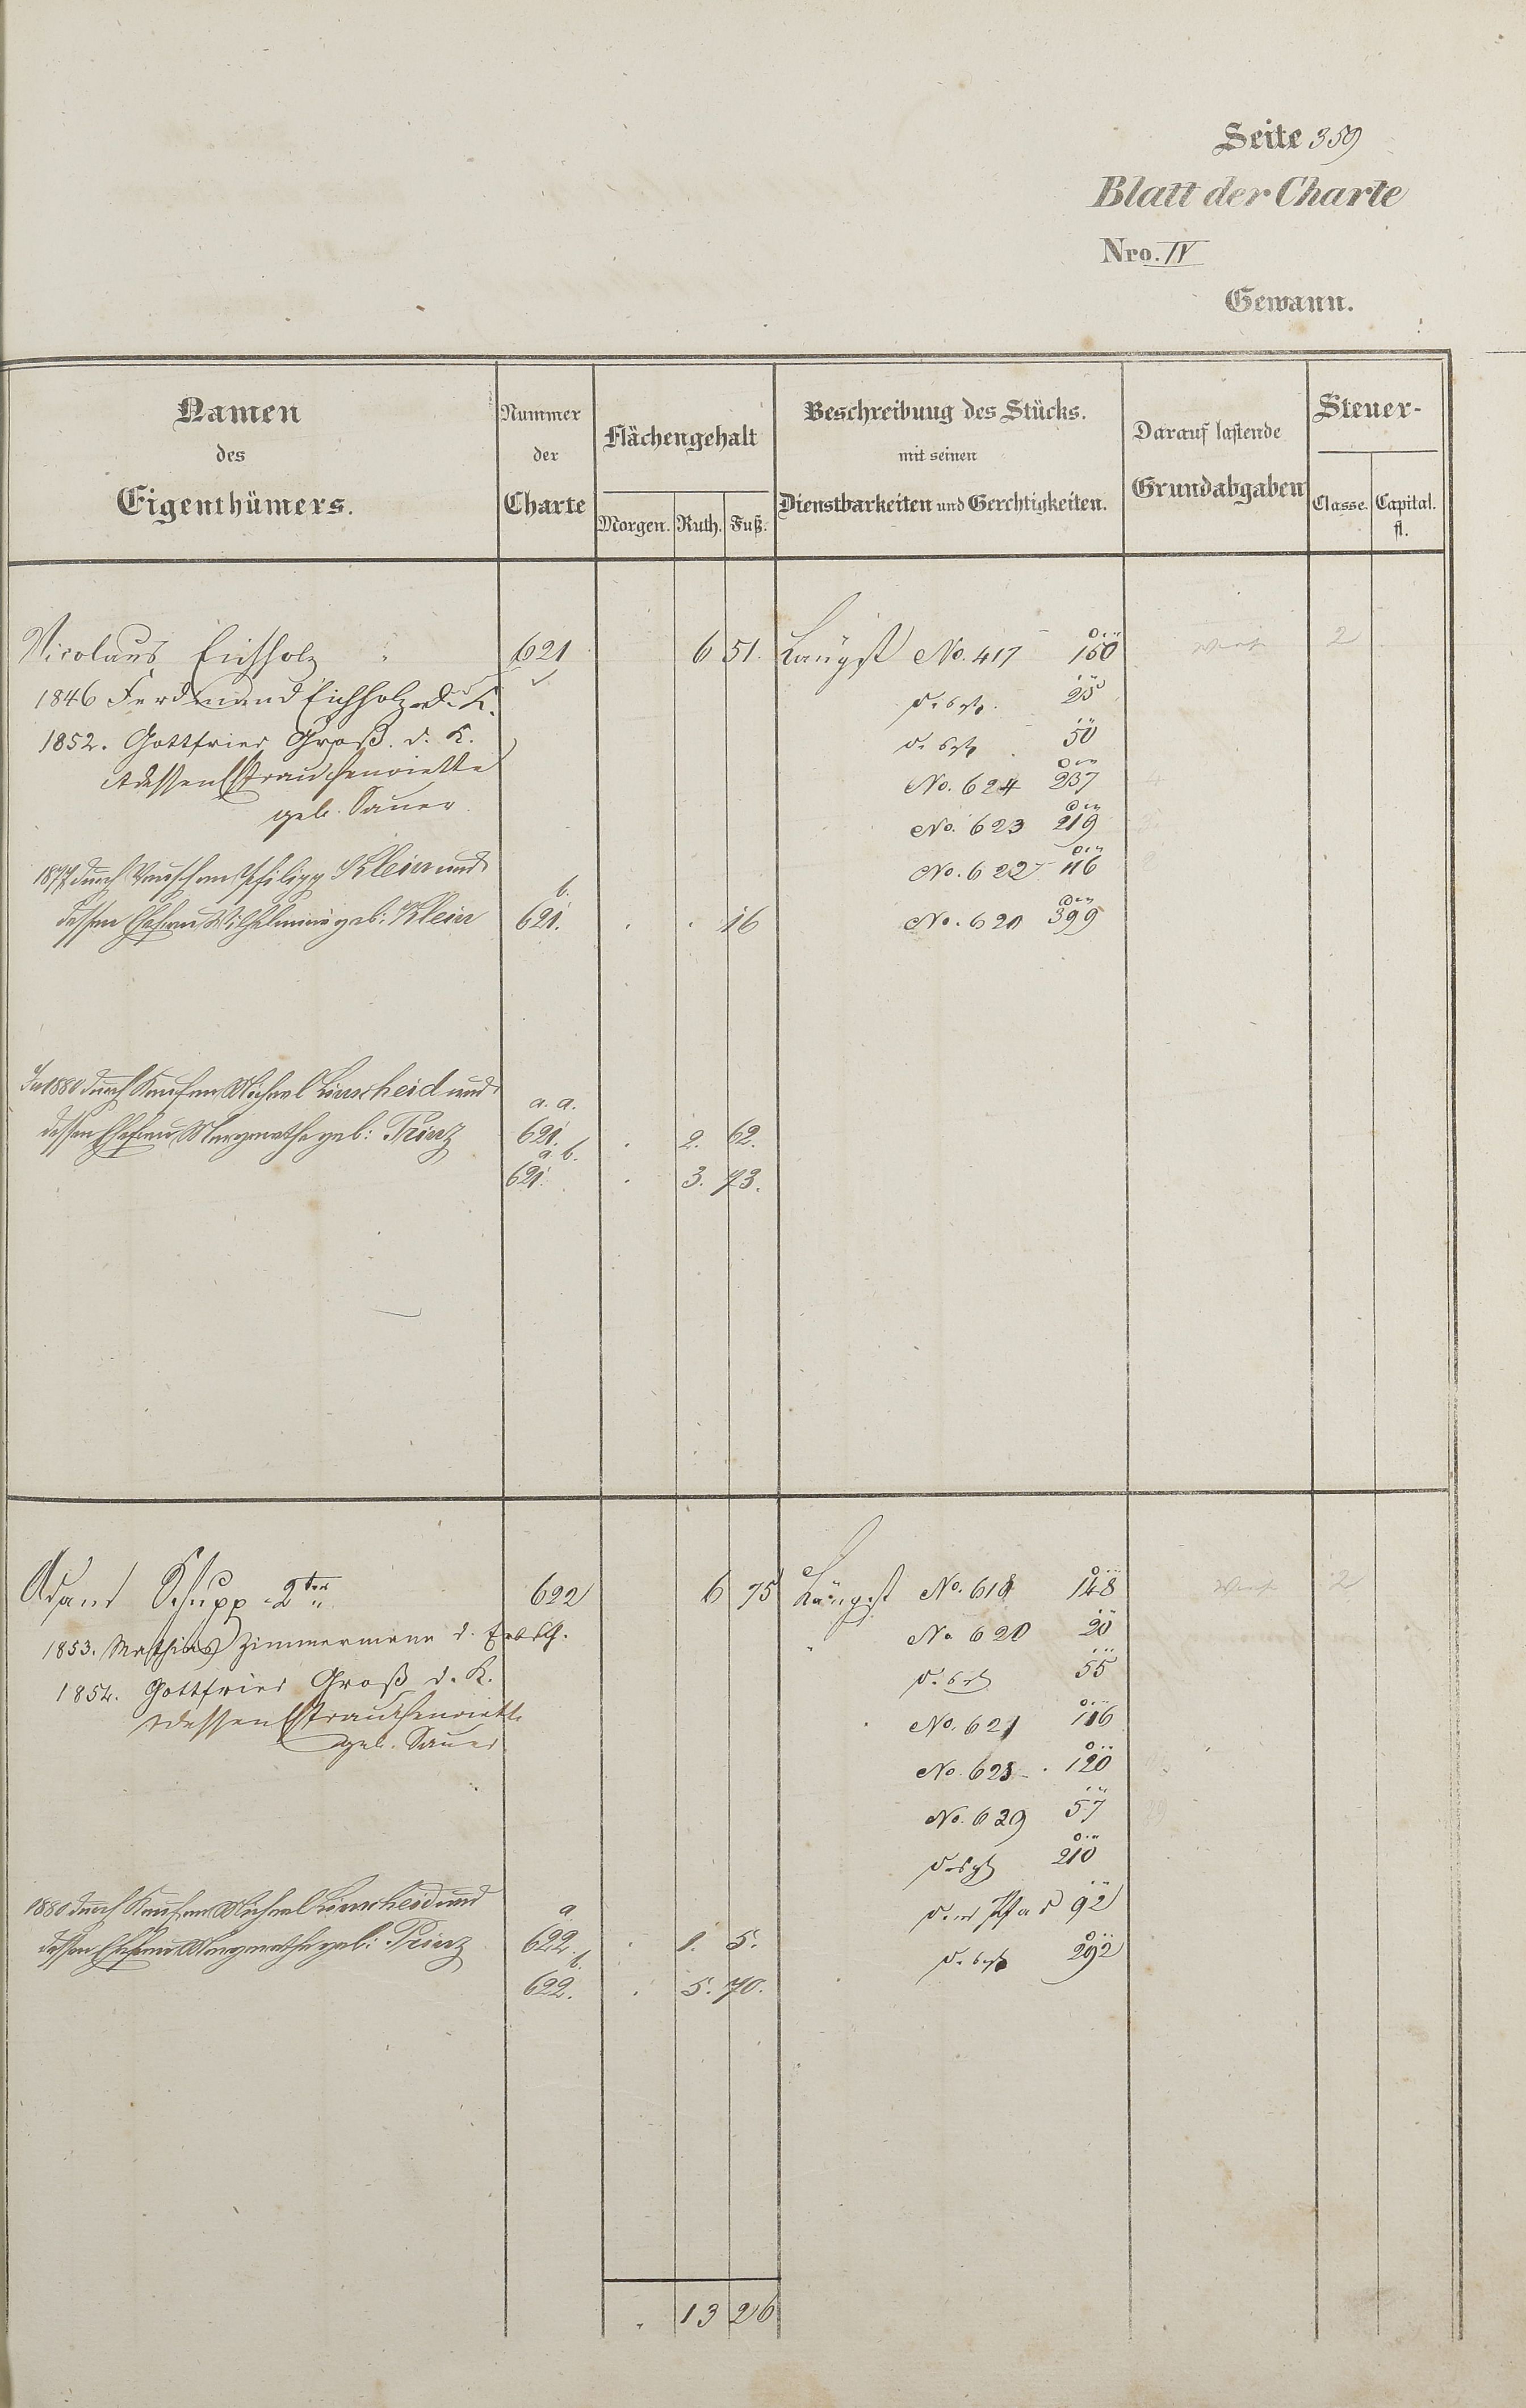 Seite 359
Blatt der Charte
Nro. IV
Gewann.
Namen des Eigenthümers.
Nummer der Charte
Flächengehalt
Morgen. Ruth. Fuß.
Beschreibung des Stücks.
mit seinen
Dienstbarkeiten und Gerechtigkeiten.
Darauf lastende
Grundabgaben
Steuer-
Classe. Capital.
fl.
Nicolaus Eichholz 621 6 51. Längst No. 417 150 2
1846 Ferdinand Eichholz d. K. 25
1852. Gottfried Groß. d. K. 50
dessen Frau Henriette No. 624 237
geb. Sauer. No. 623 219
1877 durch Tausch an Philipp Klein und No. 622 116
b.
dessen Ehefrau Wilhelmine geb: Klein 621. . . 16 No. 620 399
In 1880 durch Kauf an Michael Linscheid und a. a.
dessen Ehefrau Margarethe geb: Prinz 621. . 2. 62.
a. b.
621. . 3. 73.
Adam Schupp 2ter 622 6 75 Längst No. 618 148 2
1853. Mathias Zimmermann d. Erbsch. No 620 20
1854. Gottfried Groß d. K. 55
dessen Frau Henriette No. 621 116
geb. Sauer No. 623 120
No. 629 57
210
1880 durch Kauf an Michael Linscheid und a Pfad 92
dessen Ehefrau Margarethe geb: Prinz 622. . 1. 5. 292
b.
622. . 5. 70.
. 13 26